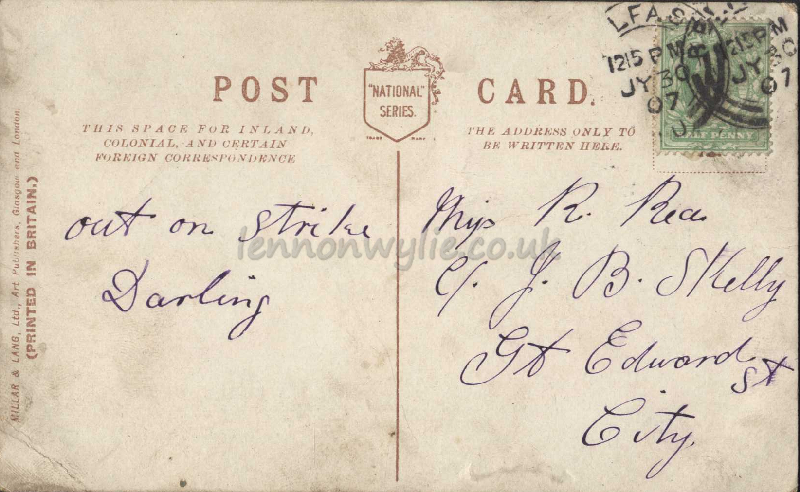 POST CARD.
"NATIONAL"
SERIES.
TRADE MARK
THIS SPACE FOR INLAND,
COLONIAL, AND CERTAIN
FOREIGN CORRESPONDENCE
THE ADDRESS ONLY TO
BE WRITTEN HERE.
LFAS
1215 PM
JY 30
07
1215 PM
JY 30
07
HALF PENNY
MILLAR & LANG, Ltd., Art Publishers, Glasgow and London
(PRINTED IN BRITAIN.)
out on Strike
Darling
Miss R. Rea
C/. J. B. Skelly
Gt Edward St
City.
lennonwylie.co.uk